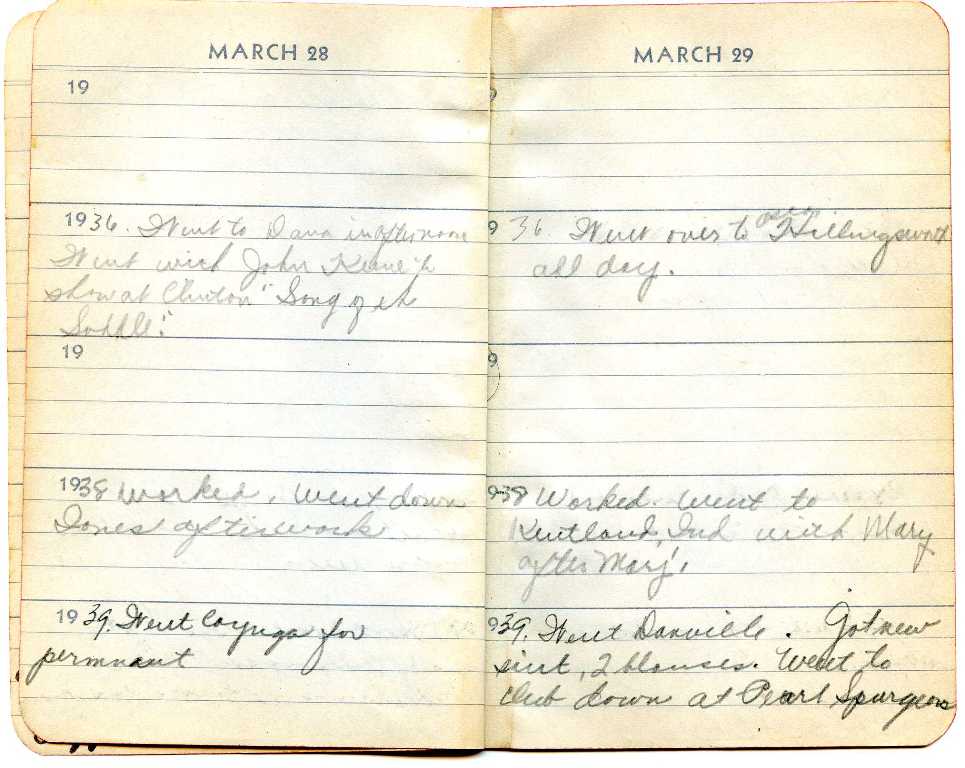 MARCH 28
19
1936. Went to Dana in afternoon
Went with John Keene to
show at Clinton "Song of the
Saddle."
19
1938 Worked. Went down
Iones after work
19 39. Went Cayuga for
permnant
MARCH 29
9
9 36. Went over to Hillingsworth
all day.
9
938 Worked. Went to
Kentland, Ind with Mary
after Marj.
939. Went Danville. Got new
suit, 2 blouses. Went to
club down at Pearl Spurgeons